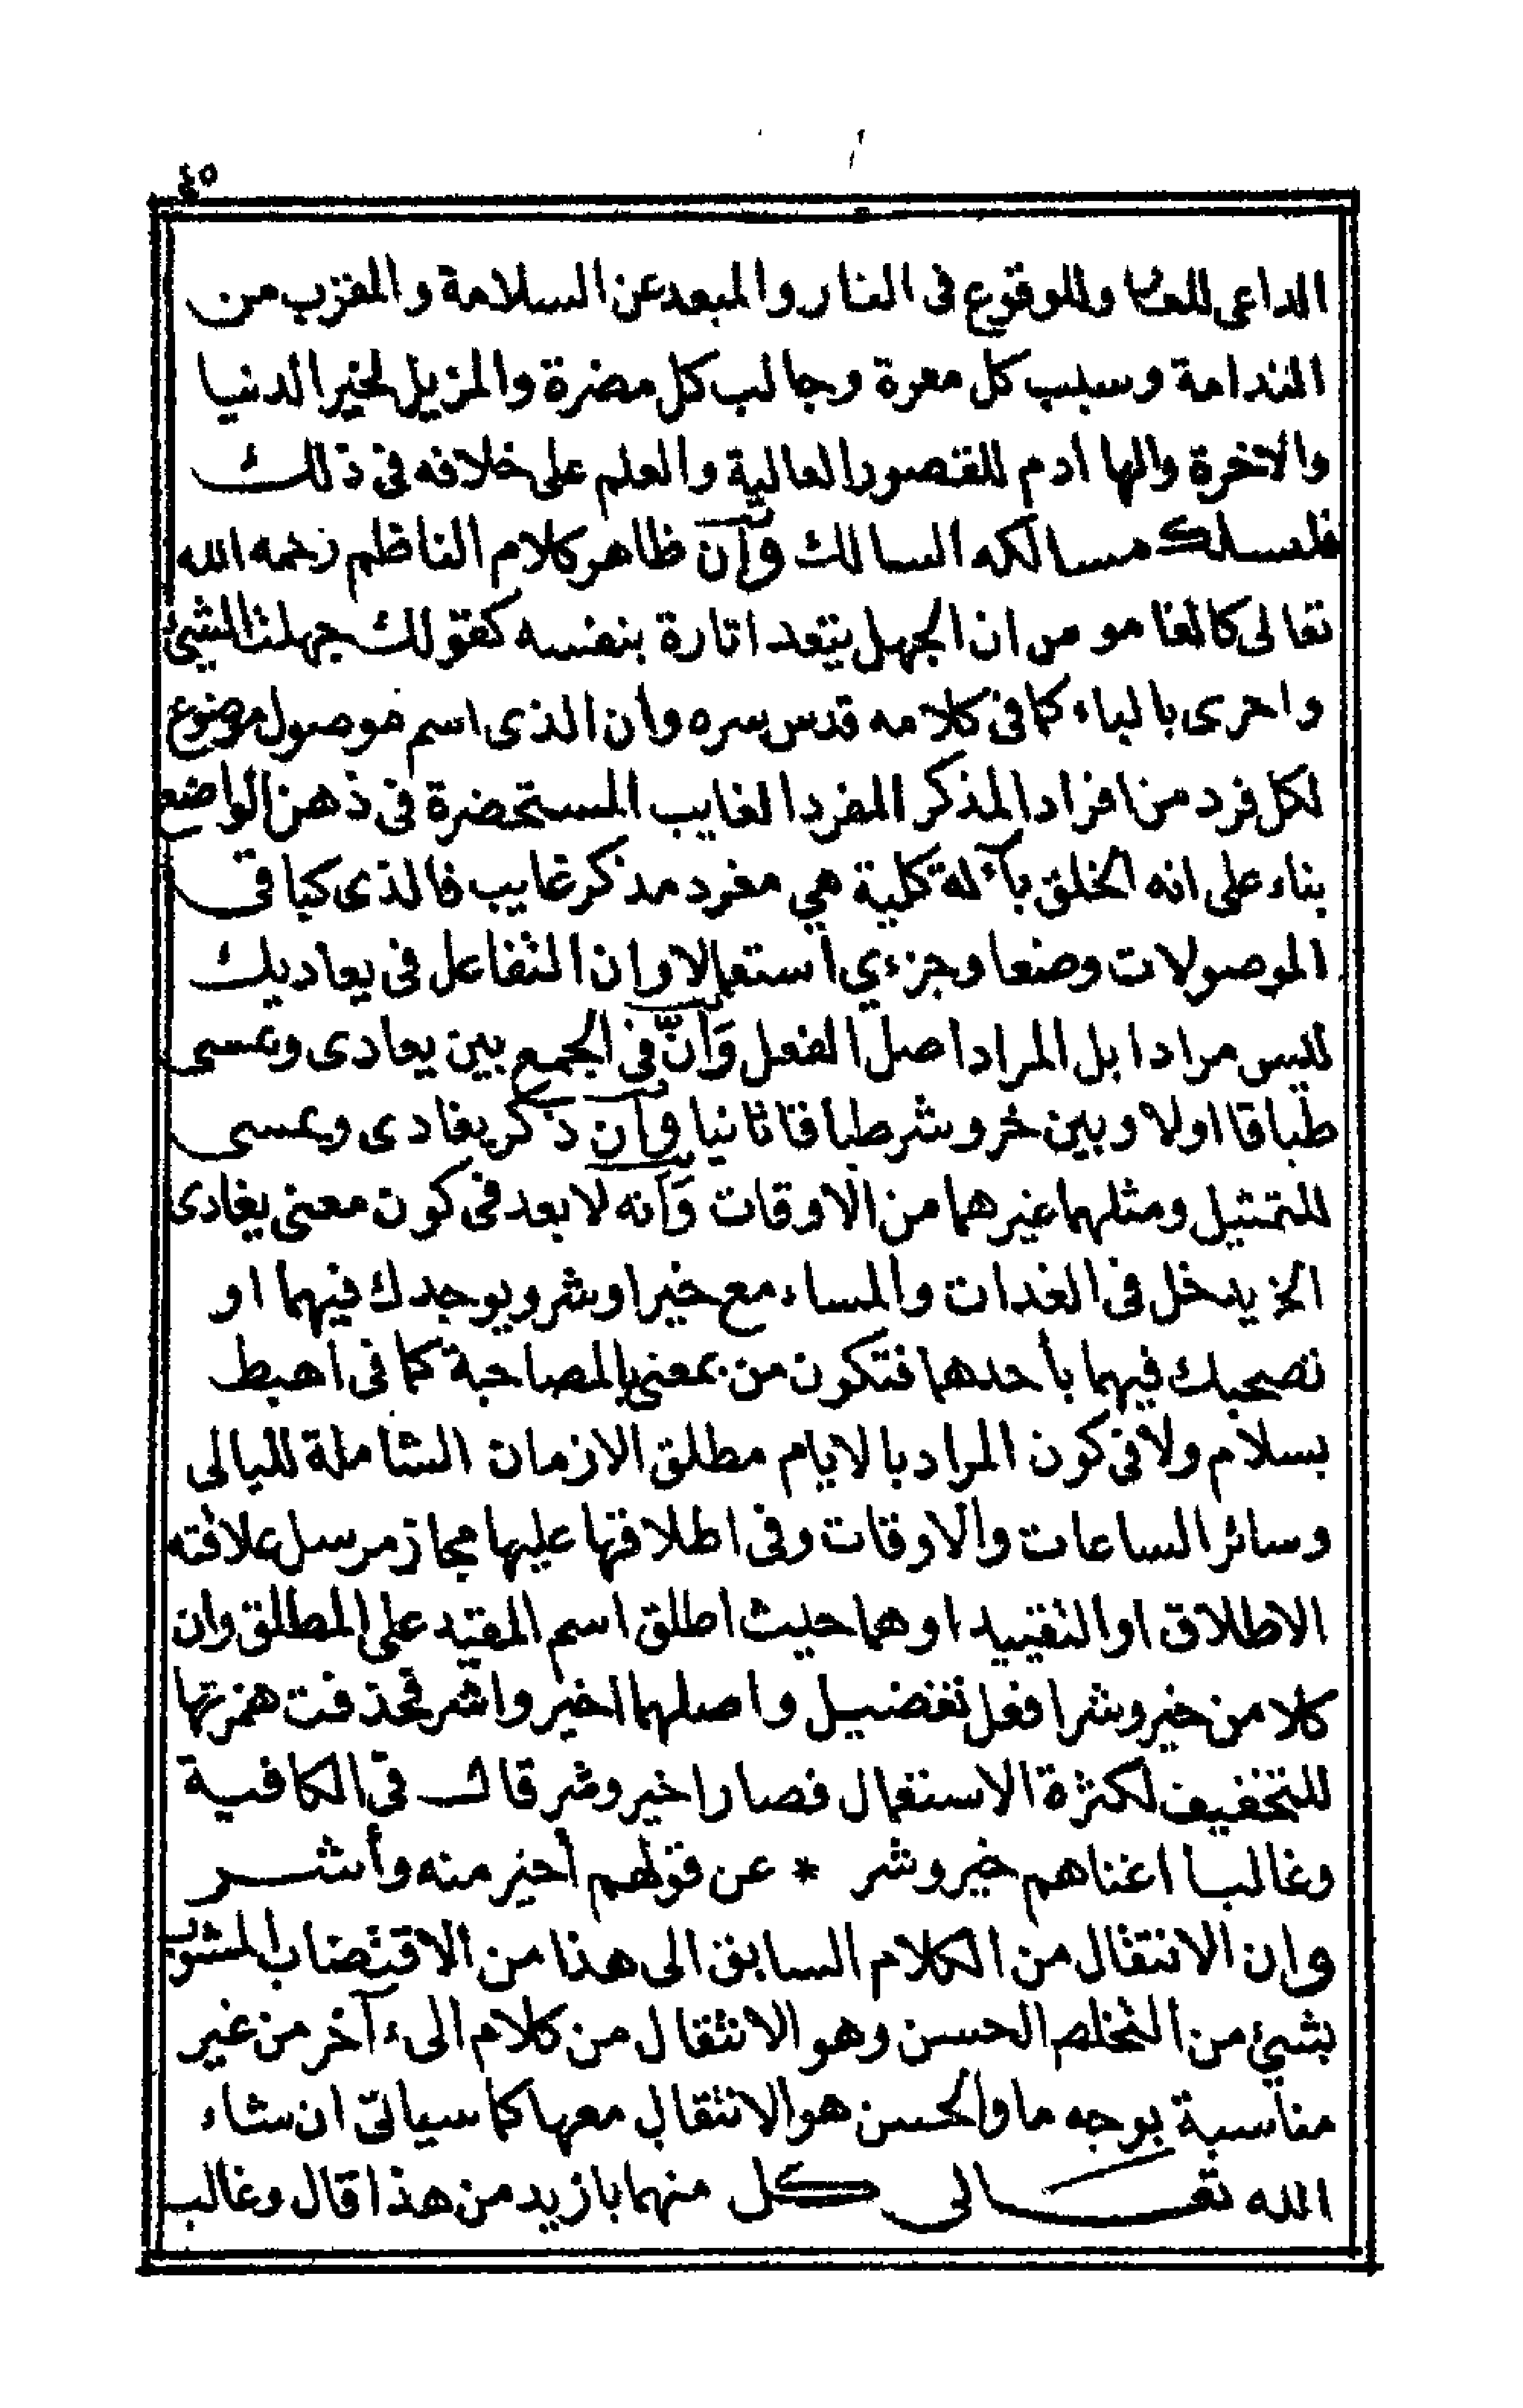 ٤٥
الداعى للعار وللوقوع فى النار والمبعد عن السلامة والمقرب من
الندامة وسبب كل معرة وجالب كل مضرة والمزيل لخير الدنيا
والآخرة والهادم للقصور العالية والعلم على خلافه فى ذلك
فليسلك مسالكه السالك وأن ظاهر كلام الناظم رحمه الله
تعالى كالقاموس ان الجهل يتعدا تارة بنفسه كقولك جهلنا الشيئ
واخرى بالباء كما فى كلامه قدس سره وأن الذى اسم موصول موضوع
لكل فرد من افراد المذكر المفرد الغايب المستحضرة فى ذهن الواضع
بناء على انه الخلق بآلة كلية هي مفرد مذكر غايب فالذى كباقى
الموصولات وضعا وجزءي استعمالا وان التفاعل فى يعاديك
ليس مرادا بل المراد اصل الفعل وَأنّ فى الجمع بين يعادى وعسى
طباقا اولا وبين خر وشر طباقا ثانيا وأن ذكر يغادى ويمسى
للتمثيل ومثلهما غيرهما من الاوقات وَأنه لا بعد فى كون معنى يغادى
الخ يدخل فى الغدات والمساء مع خير او شر ويوجدك فيهما او
نصحبك فيهما بأحدهما فتكون من بمعنى بالمصاحبة كما فى اهبط
بسلام ولا فى كون المراد بالايام مطلق الازمان الشاملة لليالى
وسائر الساعات والاوقات وفى اطلاقها عليها مجاز مرسل علاقته
الاطلاق او التقييد او هما حيث اطلق اسم المقيد على المطلق وان
كلا من خير وشر افعل تفضيل واصلهما اخير واشر فحذفت همزتها
للتخفيف لكثرة الاستعمال فصارا خير وشر قال فى الكافية
وغالبا اغناهم خير وشر * عن قولهم أخير منه وأشر
وان الانتقال من الكلام السابق الى هذا من الاقتضاب المشوب
بشيئ من التخلص الحسن وهو الانتقال من كلام الى آخر من غير
مناسبة بوجه ما والحسن هو الانتقال معها كما سياتى ان شاء
الله تعالى كل منهما بازيد من هذا قال وغالب